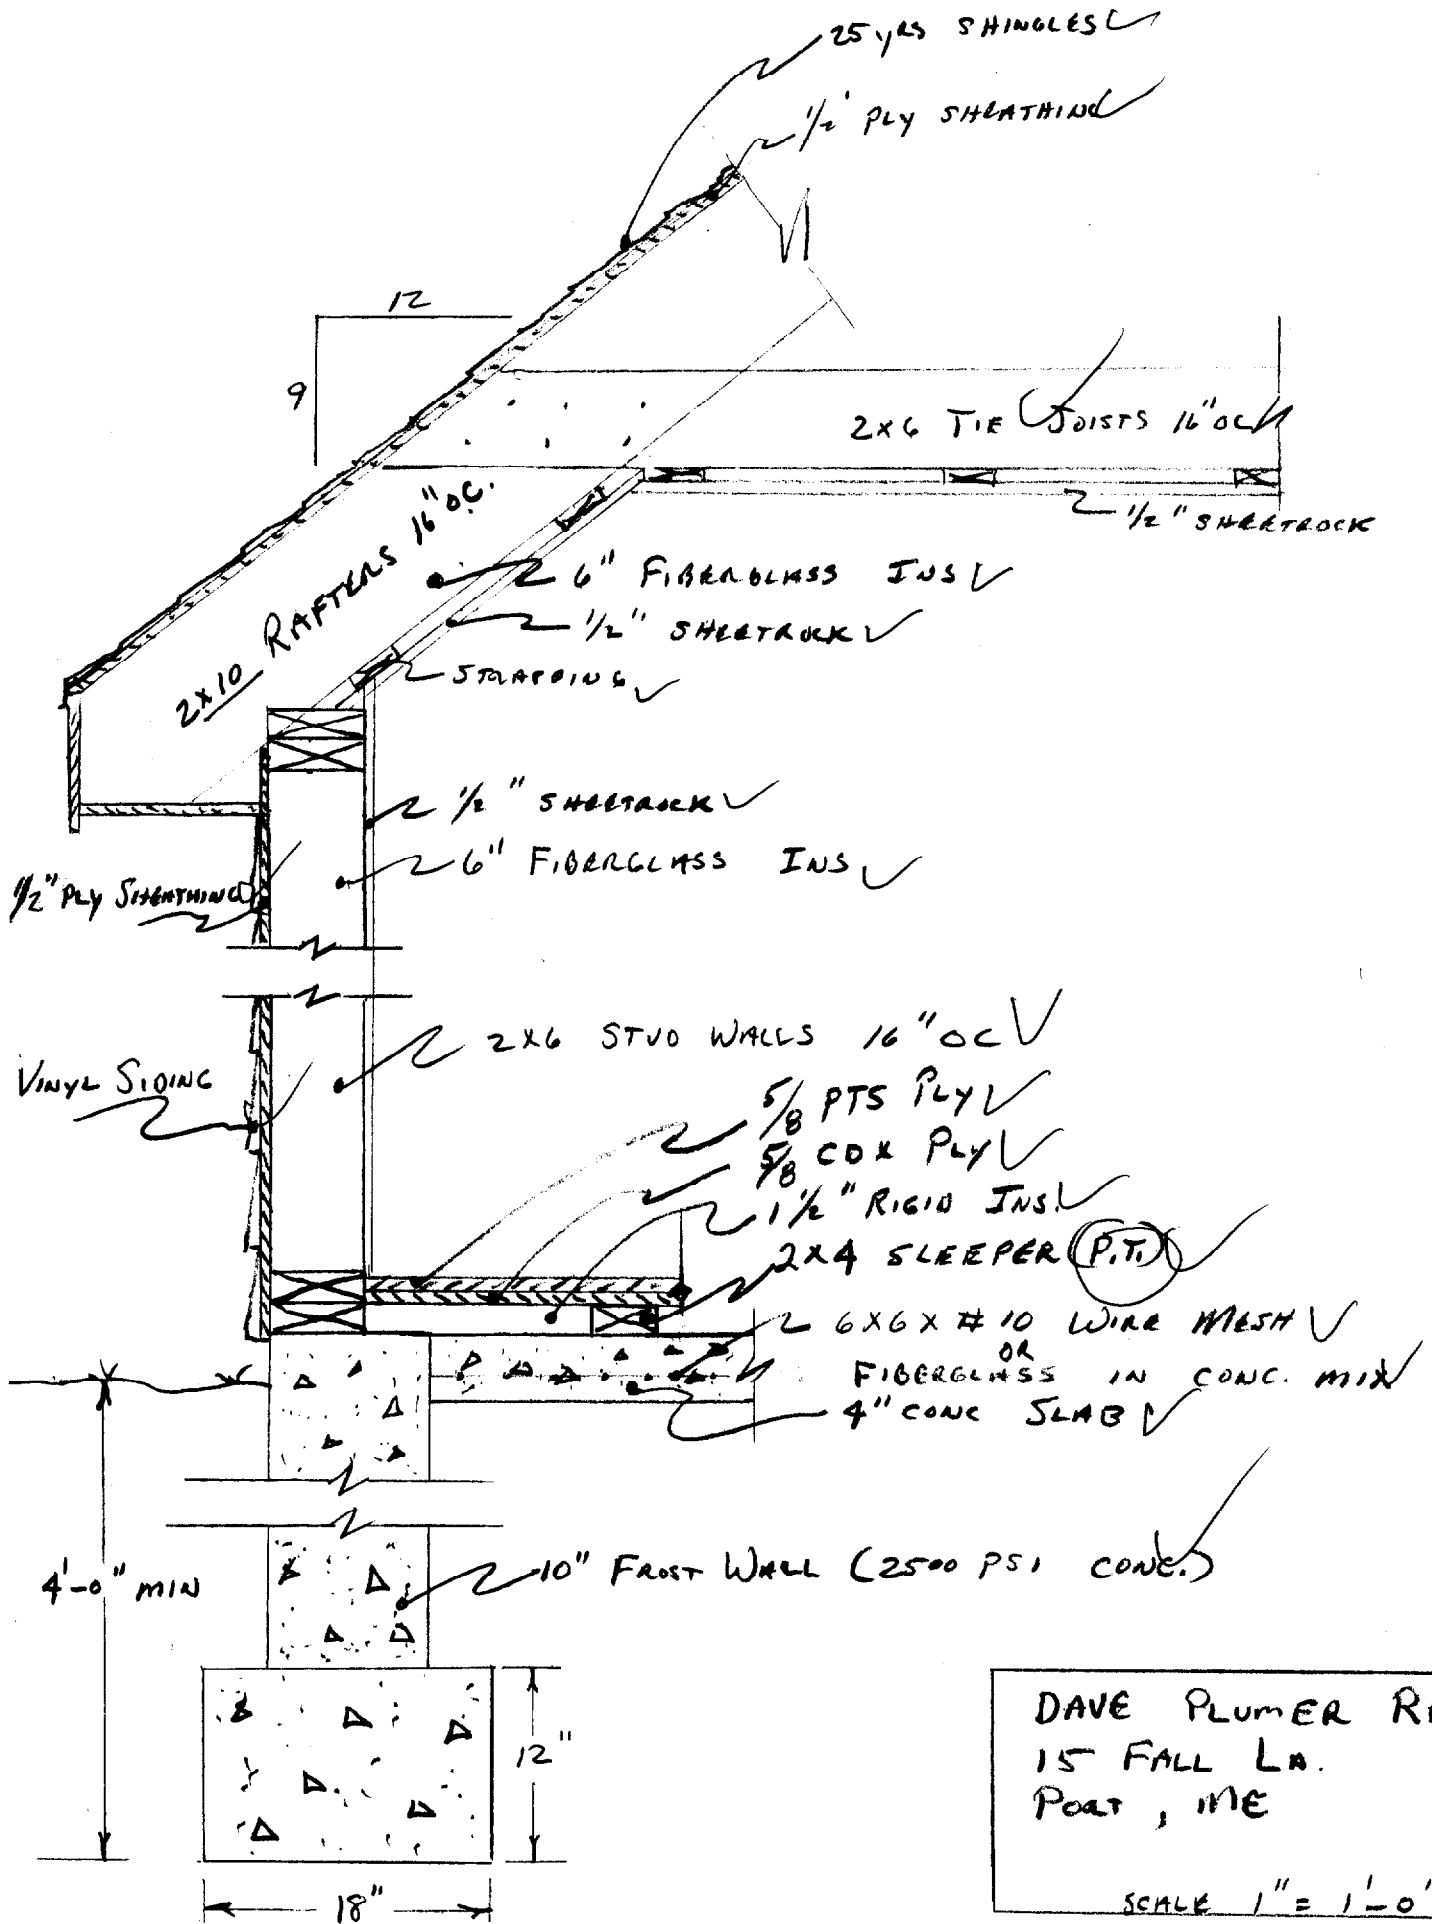 25 yrs SHINGLES
1/2' PLY SHEATHING
12
9
2x6 TIE JOISTS 16" OC
1/2" SHEETROCK
2x10 RAFTERS 16" O.C.
6" FIBERGLASS INS
1/2" SHEETROCK
STRAPPING
1/2" SHEETROCK
6" FIBERGLASS INS
1/2" PLY SHEATHING
2x6 STUD WALLS 16" OC
VINYL SIDING
5/8 PTS PLY
5/8 CDX PLY
1 1/2" RIGID INS
2x4 SLEEPER (P.T.)
6x6x #10 WIRE MESH
OR
FIBERGLASS IN CONC. MIX
4" CONC SLAB
10" FROST WALL (2500 PSI CONC.)
4'-0" MIN
12"
18"
DAVE PLUMER
15 FALL LN.
PORT, ME
SCALE 1" = 1'-0"